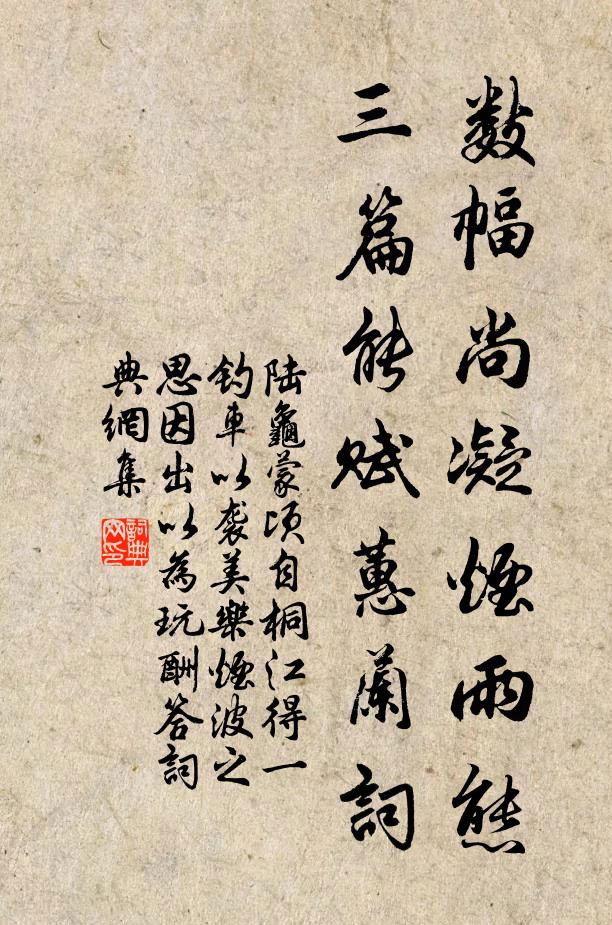 数幅尚凝煙雨態
三篇能賦蕙蘭詞
陸龜蒙頃自桐江得一
釣車以襲美樂煙波之
思因出以為玩酬答詞
典網集
詞典
网印